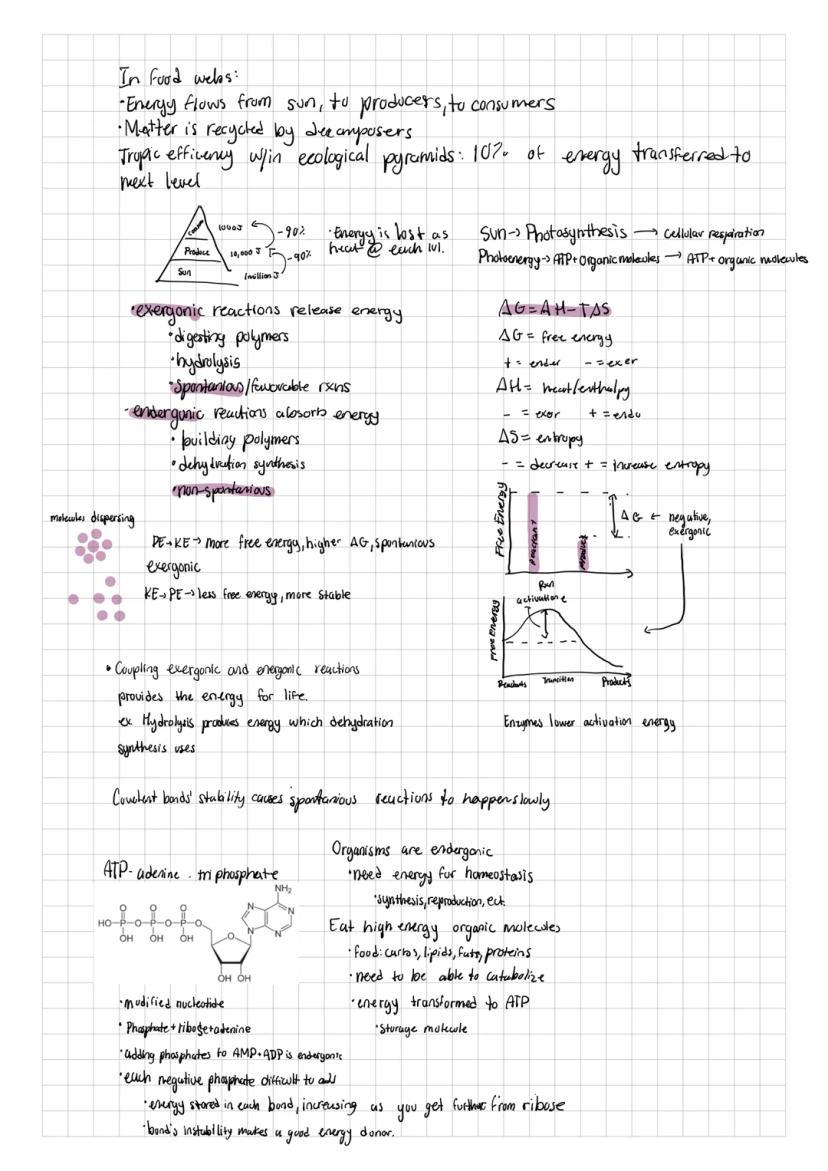 In food webs:
•Energy flows from sun, to producers, to consumers
•Matter is recycled by decomposers
Tropic efficency w/in ecological pyramids: 10% of energy transferred to
next level
Consume
1000J
-90%
Produce
10,000 J
-90%
Sun
1million J
•Energy is lost as
heat @ each lvl.
Sun→ Photosynthesis → cellular respiration
Photoenergy→ATP+Organic molecules → ATP+ organic molecules
•exergonic reactions release energy
•digesting polymers
•hydrolysis
•spontanious/favorable rxns
•endergonic reactions absorb energy
•building polymers
•dehydration synthesis
•non-spontanious
ΔG=ΔH-TΔS
ΔG= free energy
+ = ender - = exer
ΔH= heat/enthalpy
- = exor + = endo
ΔS= entropy
- = decrease + = increase entropy
Free Energy
Reactant
Product
ΔG ← negative,
exergonic
Rxn
molecules dispersing
PE→KE→ more free energy, higher ΔG, spontanious
exergonic
KE→PE→ less free energy, more stable
activation e
Free Energy
Reactants
Transition
Products
Enzymes lower activation energy
•Coupling exergonic and energonic reactions
provides the energy for life.
ex Hydrolysis produces energy which dehydration
synthesis uses
Covalent bonds' stability causes spontanious reactions to happen slowly
ATP- adenine tri phosphate
NH₂
N
N
N
N
O
O
O
HO-P-O-P-O-P-O
OH
OH
OH
O
OH OH
•modified nucleotide
•Phosphate+ribose+adenine
•adding phosphates to AMP+ADP is endergonic
•each negative phosphate difficult to add
•energy stored in each bond, increasing as you get further from ribose
•bond's instability makes a good energy donor.
Organisms are endergonic
•need energy for homeostasis
•synthesis, reproduction, ect.
Eat high energy organic molecules
•food: carbs, lipids, fats, proteins
•need to be able to catabolize
•energy transformed to ATP
•storage molecule